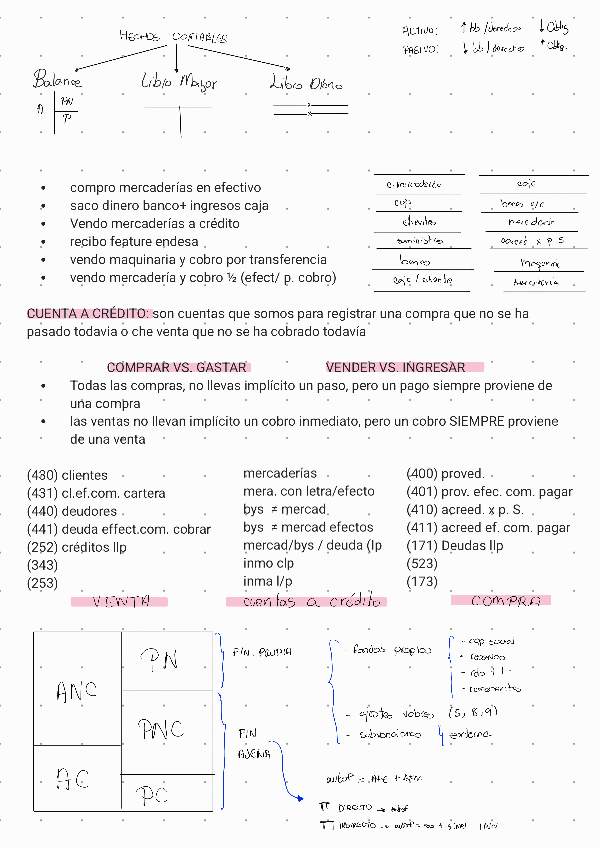 HECHOS CONTABLES
ACTIVO: ↑ bb/derechos ↓ Oblig
PASIVO: ↓ bb/derechos ↑ Oblig.
Balance
Libro Mayor
Libro Diario
PN
P
• compro mercaderías en efectivo
• saco dinero banco+ ingresos caja
• Vendo mercaderías a crédito
• recibo feature endesa
• vendo maquinaria y cobro por transferencia
• vendo mercadería y cobro ½ (efect/ p. cobro)
caja
caja
banco c/c
clientes
mercaderia
suministros
acreed x p. S.
banco
maquinaria
caja / clientes
mercaderia
CUENTA A CRÉDITO: son cuentas que somos para registrar una compra que no se ha
pasado todavia o che venta que no se ha cobrado todavía
COMPRAR VS. GASTAR VENDER VS. INGRESAR
• Todas las compras, no llevas implícito un paso, pero un pago siempre proviene de
una compra
• las ventas no llevan implícito un cobro inmediato, pero un cobro SIEMPRE proviene
de una venta
(430) clientes mercaderías (400) proved.
(431) cl.ef.com. cartera mera. con letra/efecto (401) prov. efec. com. pagar
(440) deudores bys ≠ mercad (410) acreed. x p. S.
(441) deuda effect.com. cobrar bys ≠ mercad efectos (411) acreed ef. com. pagar
(252) créditos llp mercad/bys / deuda (lp (171) Deudas llp
(343) inmo clp (523)
(253) inma l/p (173)
VENTA cuentas a crédito COMPRA
ANC
AC
PN
PNC
PC
FIN. PROPIA
FIN
AJENA
- fondos propios
- cap social
- reservas
- remanentes
- ajustes valores (5, 8, 9)
- subvenciones
externa
DIRECTO
INDIRECTO